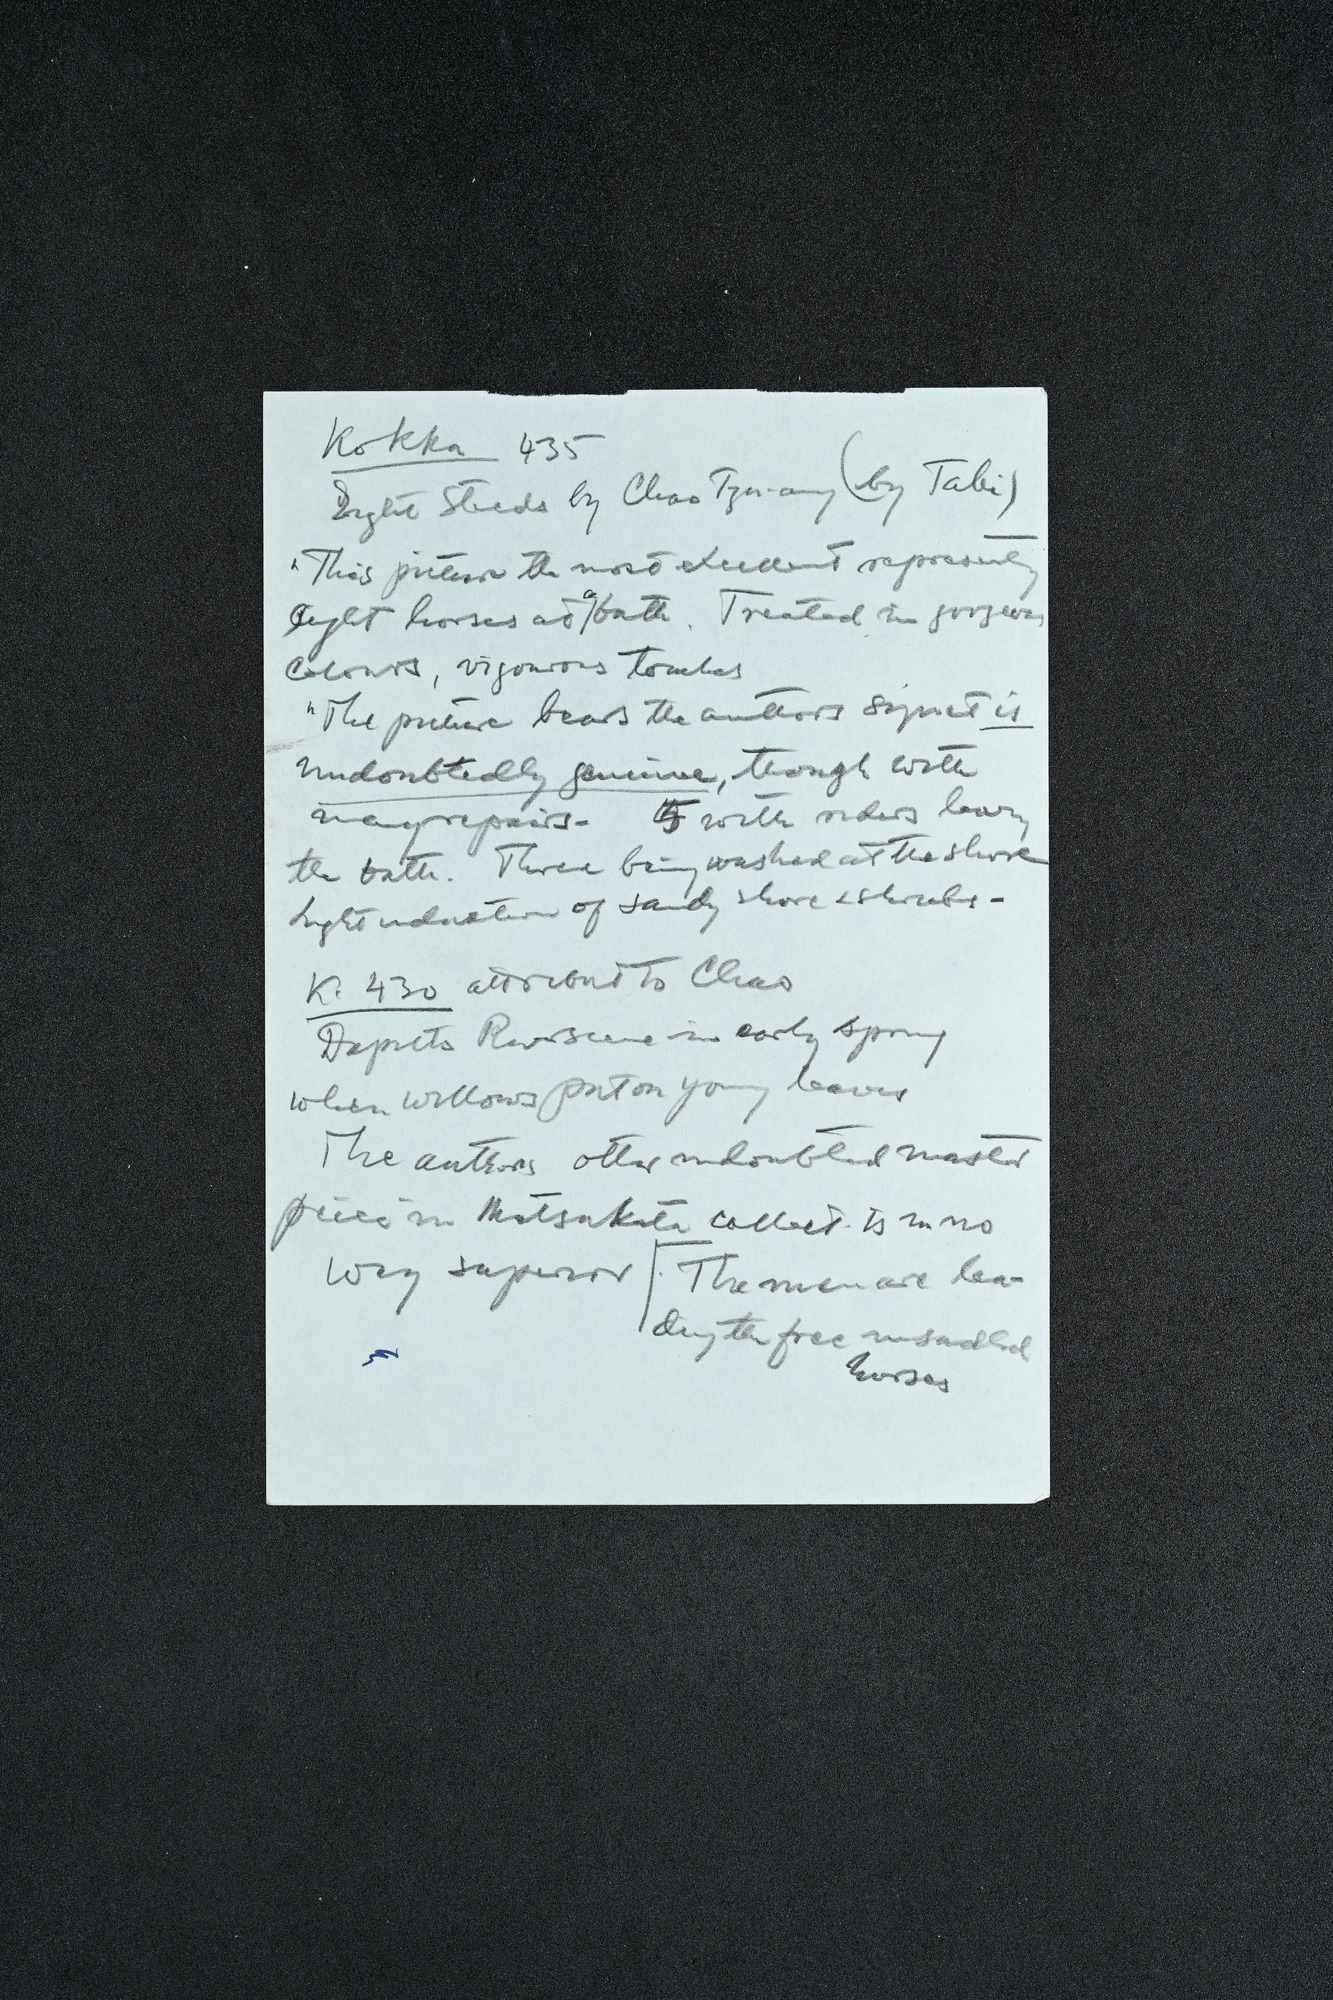 Kokka 435
Eight Steeds by Chao Tzu-ang (by Taki)
"This picture the most excellent represently
eight horses at a bath. Treated in gorgeous
colours, vigourous touches
"The picture bears the authors signet is
undoubtedly genuine, though with
many repairs- 5 with riders leavg
the bath. Three being washed at the shore
Light indication of sandy shore & shrubs-
K. 430 attribut to Chao
Depicts River scene in early spring
when willows put on young leaves
The authors other undoubted master
piece in Matsukata collect. is in no
way superior The men are lea-
ding the free unsaddled
horses